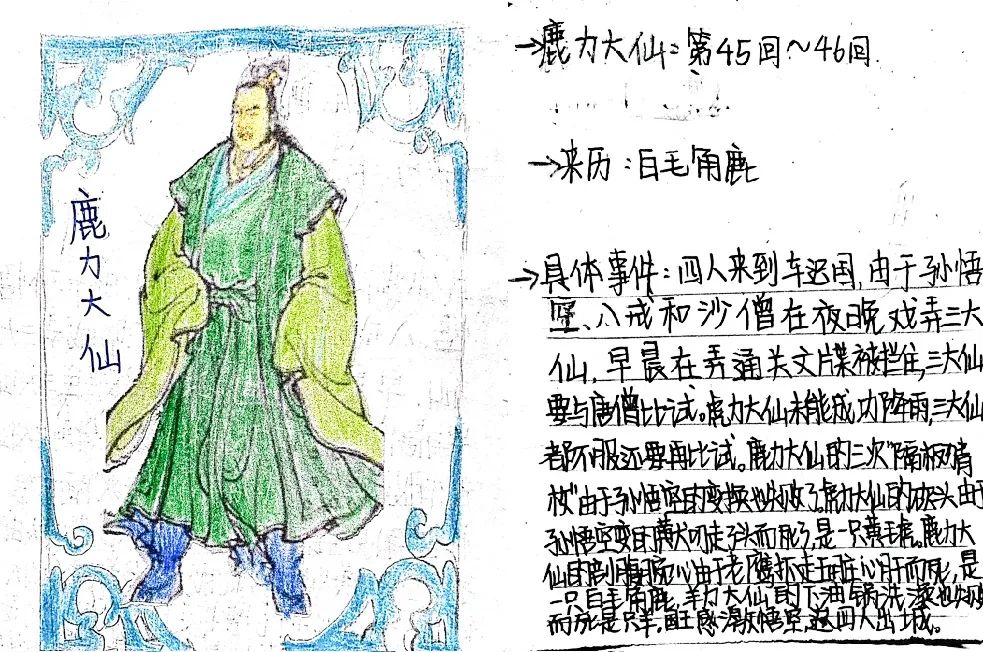 鹿力大仙
→鹿力大仙：第45回～46回
→来历：白毛角鹿
→具体事件：四人来到车迟国，由于孙悟
空、八戒和沙僧在夜晚戏弄三大
仙，早晨在弄通关文牒被拦住，三大仙
要与唐僧比试。虎力大仙未能成功降雨，三大仙
都不服还要再比试。鹿力大仙的三次“隔板猜
枚”由于孙悟空的变换也失败了，虎力大仙的砍头由于
孙悟空变的黄犬叼走头而死了，是一只黄毛虎。鹿力大
仙的剖腹剜心由于老鹰抓走五脏心肝而死，是
一只白毛角鹿，羊力大仙的下油锅洗澡也失败
而死是只羊。国王感激悟空，送四人出城。